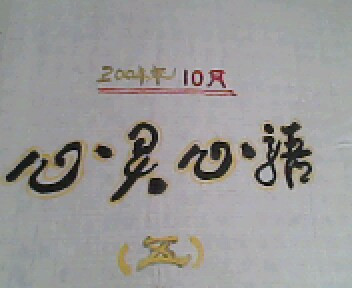 2004年10月
心灵心語
(五)